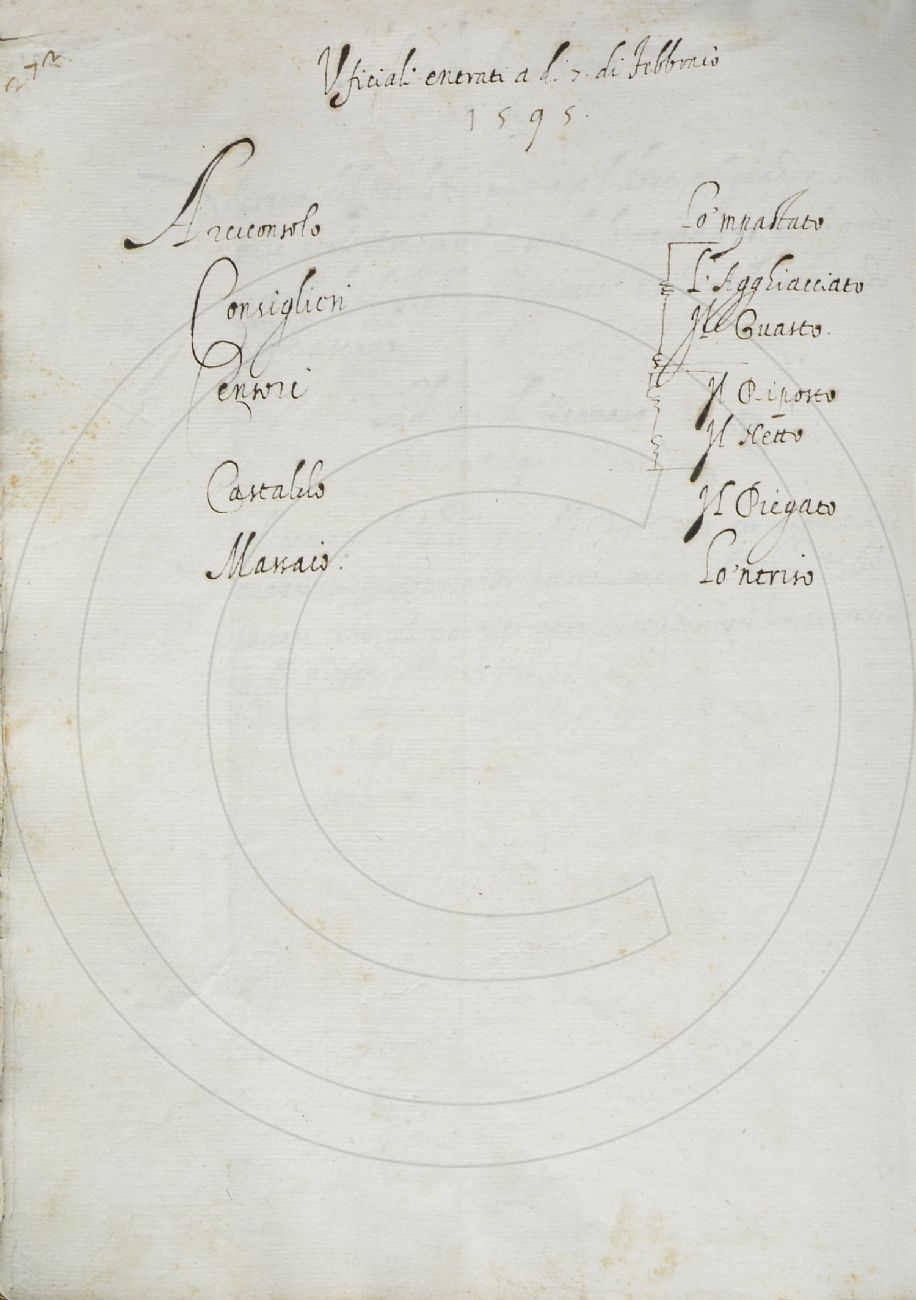 272
Uficiali entrati a dì 7. di Febbraio
1595.
Arciconsolo Lo'mpastato
Consiglieri L'Agghiacciato
Il Guasto.
Censori Il Riposto
Il Netto
Castaldo Il Piegato
Massaio. Lo'ntriso